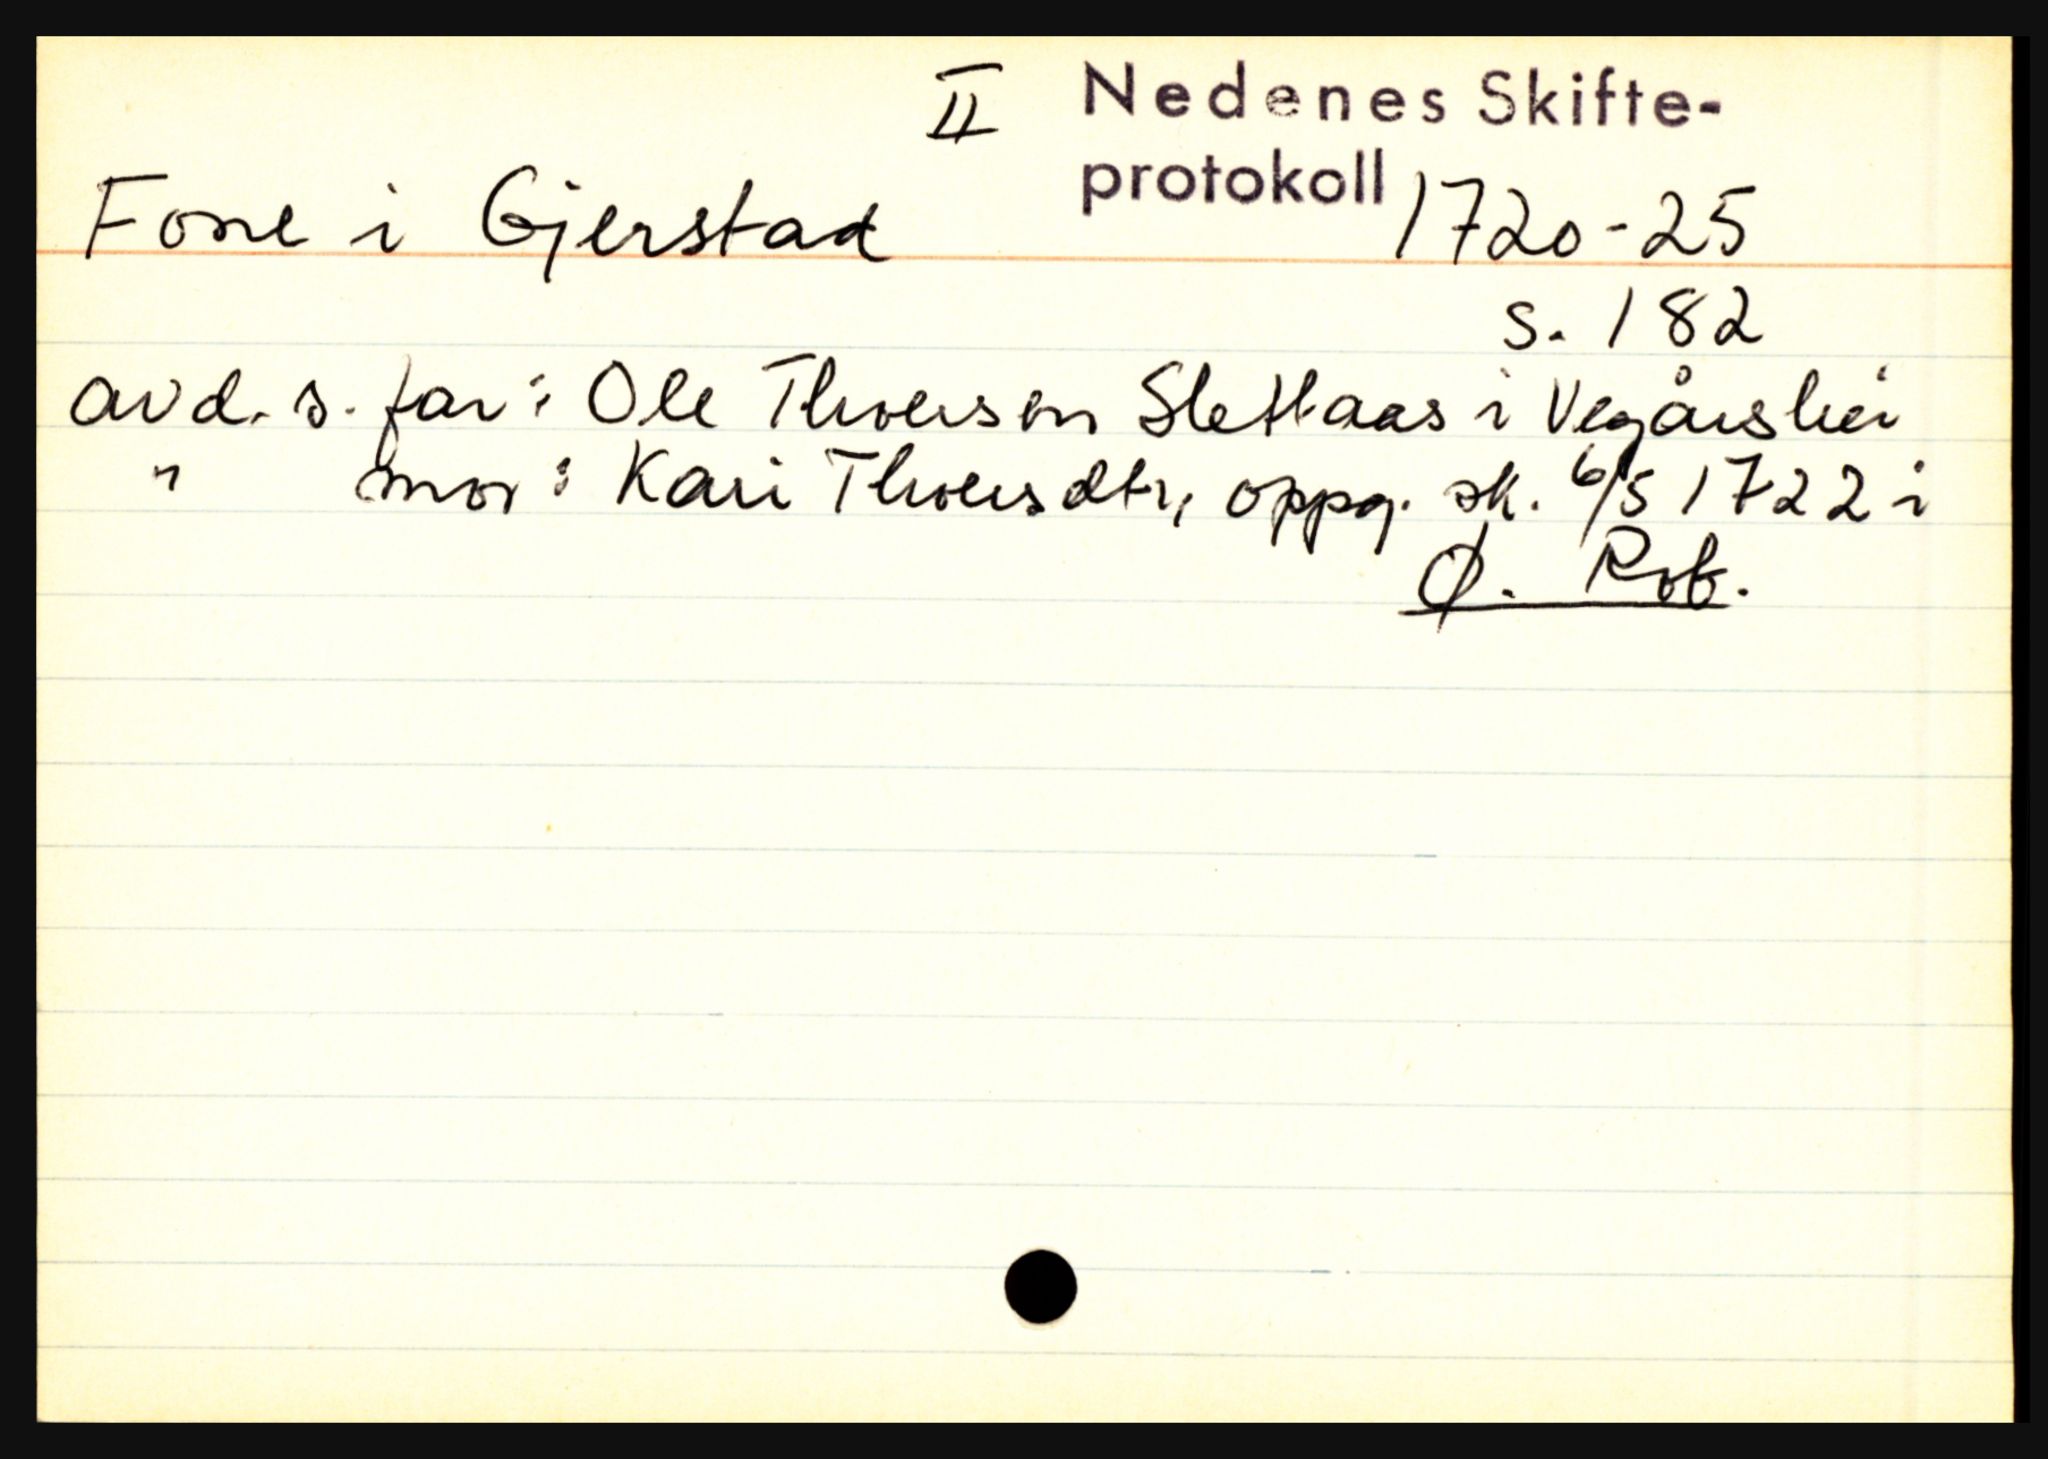 II Nedenes Skifte-
protokoll 1720-25
Fone i Gjerstad
s. 182
avd. s. far: Ole Thorersen Slettaas i Vegårshei
" mor: Kari Thorersdtr, oppg. sk. 6/5 1722 i
Ø. Rob.